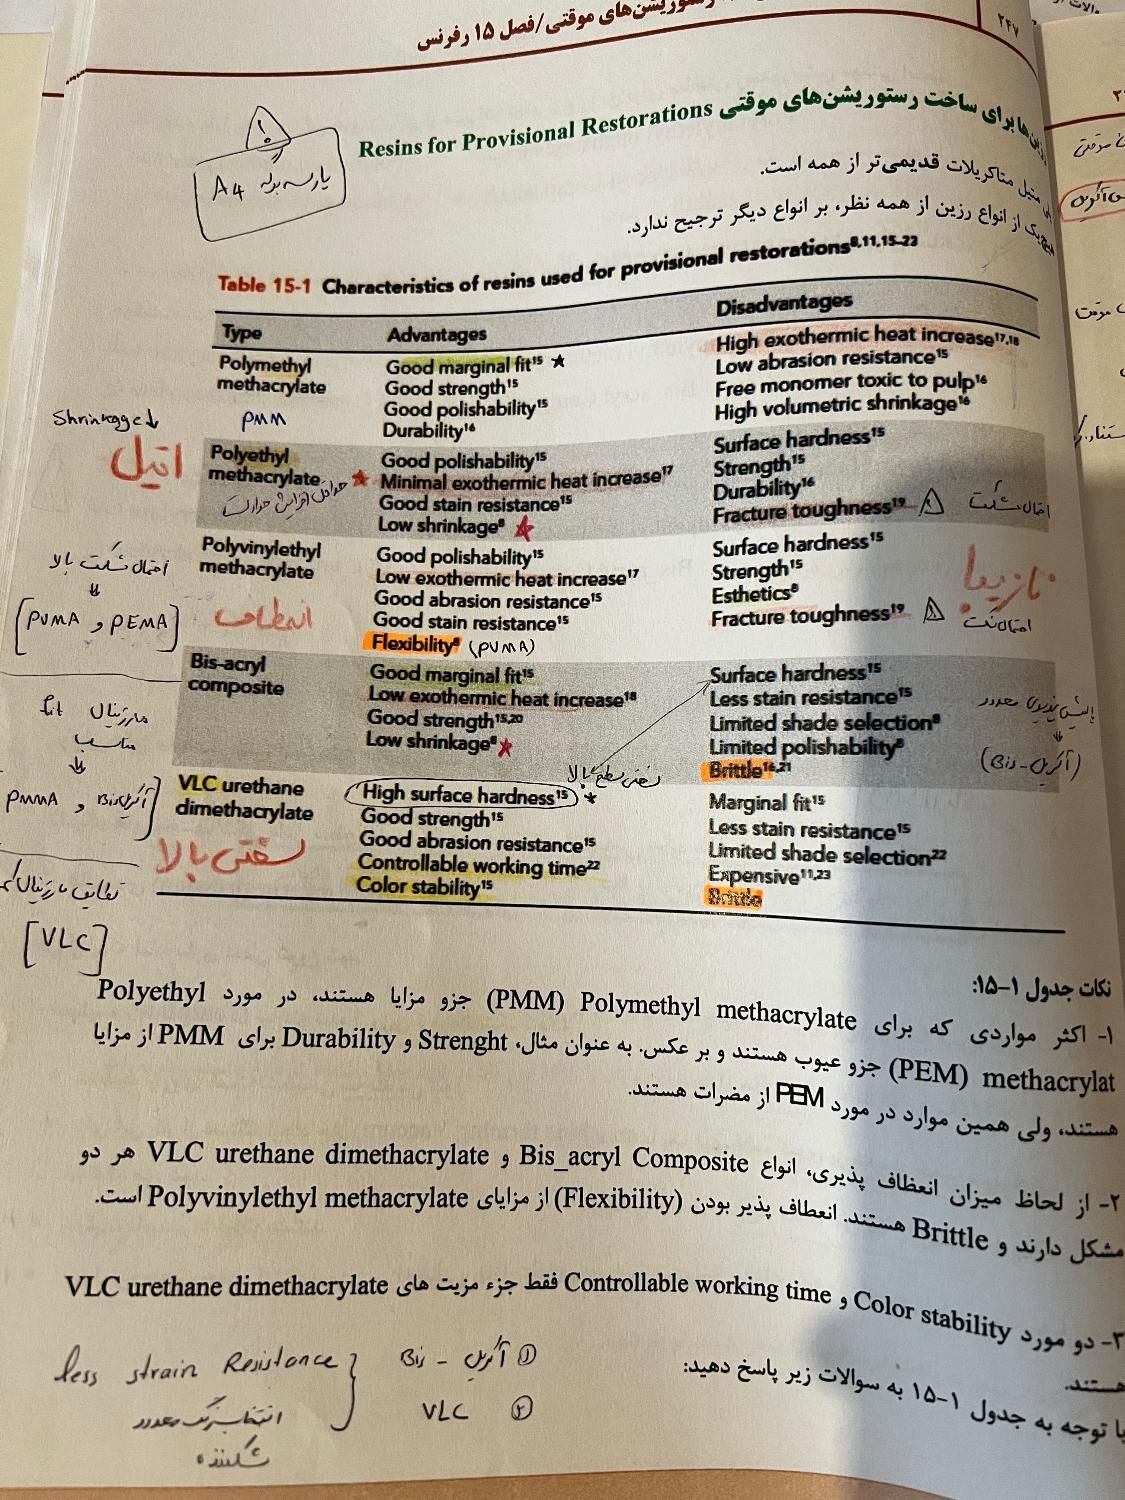 رستوریشن‌های موقتی/فصل ۱۵ رفرنس
۲۴۷
برای ساخت رستوریشن‌های موقتی Resins for Provisional Restorations
متیل متاکریلات قدیمی‌تر از همه است.
هیچ‌یک از انواع رزین از همه نظر، بر انواع دیگر ترجیح ندارد.
!
A4
Table 15-1 Characteristics of resins used for provisional restorations8,11,15-23
Type Advantages Disadvantages
Polymethyl methacrylate
PMM
Good marginal fit15 ★
Good strength15
Good polishability15
Durability16
High exothermic heat increase17,18
Low abrasion resistance15
Free monomer toxic to pulp16
High volumetric shrinkage16
Shrinkage↓
اتیل
Polyethyl methacrylate
حداقل افزایش حرارت
Good polishability15
★ Minimal exothermic heat increase17
Good stain resistance15
Low shrinkage8 ★
Surface hardness15
Strength15
Durability16
Fracture toughness19
احتمال شکست
Polyvinylethyl methacrylate
انعطاف
Good polishability15
Low exothermic heat increase17
Good abrasion resistance15
Good stain resistance15
Flexibility8 (PVMA)
Surface hardness15
Strength15
Esthetics8
Fracture toughness19
نازیبا
احتمال شکست
احتمال شکست بالا
⇓
[PVMA و PEMA]
Bis-acryl composite
Good marginal fit15
Low exothermic heat increase18
Good strength15,20
Low shrinkage8 ★
Surface hardness15
Less stain resistance15
Limited shade selection8
Limited polishability8
Brittle16,21
پالیش پذیری محدود
↓
(Bis-آکریل)
مارژینال fit
مناسب
⇓
PMMA و Bis آکریل
VLC urethane dimethacrylate
سختی بالا
High surface hardness15 ★
سختی سطح بالا
Good strength15
Good abrasion resistance15
Controllable working time22
Color stability15
Marginal fit15
Less stain resistance15
Limited shade selection22
Expensive11,23
Brittle
تطابق مارژینال کم
[VLC]
نکات جدول ۱-۱۵:
۱- اکثر مواردی که برای Polymethyl methacrylate (PMM) جزو مزایا هستند، در مورد Polyethyl
methacrylat (PEM) جزو عیوب هستند و بر عکس. به عنوان مثال، Strenght و Durability برای PMM از مزایا
هستند، ولی همین موارد در مورد PEM از مضرات هستند.
۲- از لحاظ میزان انعظاف پذیری، انواع Bis_acryl Composite و VLC urethane dimethacrylate هر دو
مشکل دارند و Brittle هستند. انعطاف پذیر بودن (Flexibility) از مزایای Polyvinylethyl methacrylate است.
۳- دو مورد Color stability و Controllable working time فقط جزء مزیت های VLC urethane dimethacrylate
هستند.
با توجه به جدول ۱-۱۵ به سوالات زیر پاسخ دهید:
① Bis - آکریل
② VLC
less strain Resistance
انتخاب رنگ محدود
شکننده